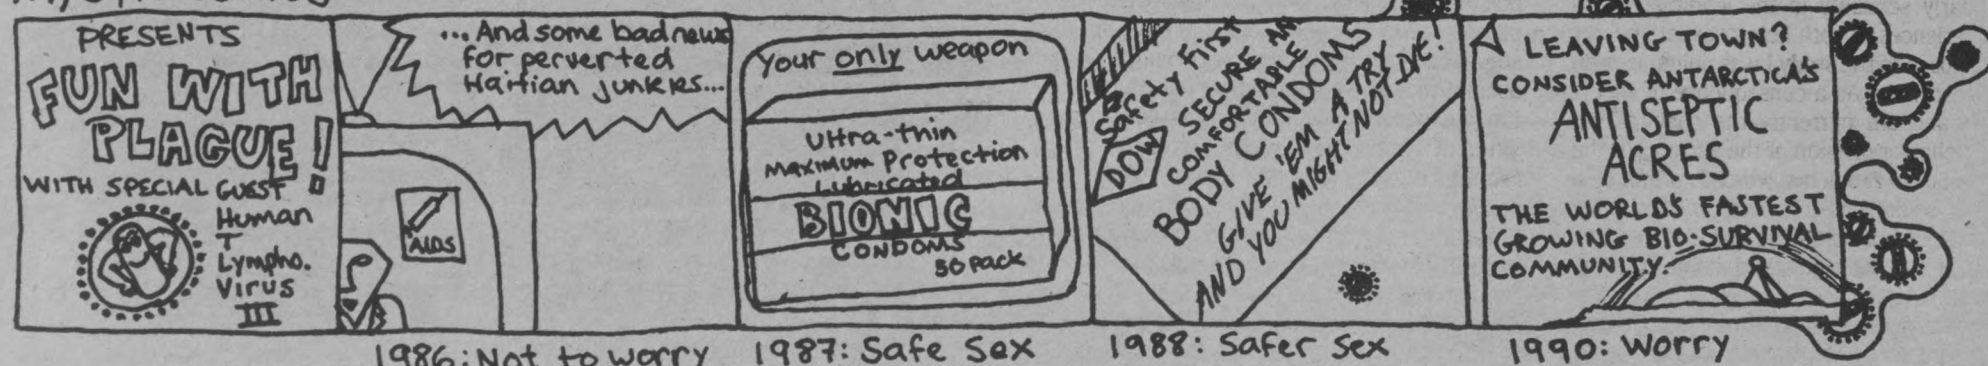 PRESENTS
FUN WITH
PLAGUE!
WITH SPECIAL GUEST
Human
T
Lympho.
Virus
III
...And some bad news
for perverted
Haitian junkies...
AIDS
1986: Not to worry
Your only weapon
Ultra-thin
Maximum Protection
Lubricated
BIONIC
CONDOMS
50 pack
1987: Safe Sex
Safety First
DOW
SECURE AN
COMFORTABLE
BODY CONDOMS
GIVE 'EM A TRY
AND YOU MIGHT NOT DIE!
1988: Safer Sex
LEAVING TOWN?
CONSIDER ANTARCTICA'S
ANTISEPTIC
ACRES
THE WORLD'S FASTEST
GROWING BIO-SURVIVAL
COMMUNITY.
1990: Worry